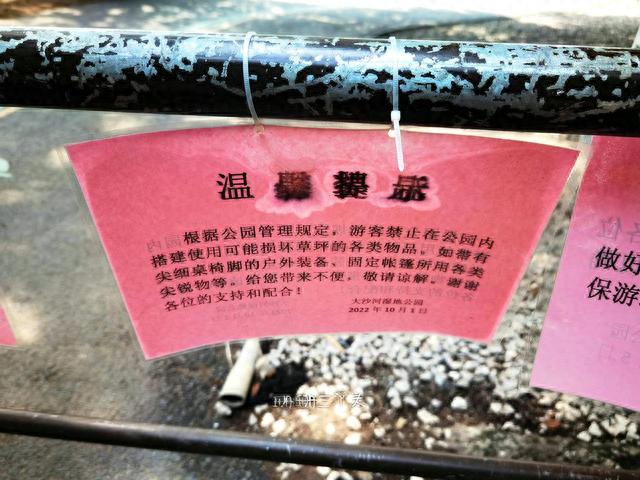 温
根据公园管理规定，游客禁止在公园内
搭建使用可能损坏草坪的各类物品。如带有
尖细桌椅脚的户外装备、固定帐篷所用各类
尖锐物等。给您带来不便，敬请谅解。谢谢
各位的支持和配合！
大沙河湿地公园
2022年10月1日
做好
保游